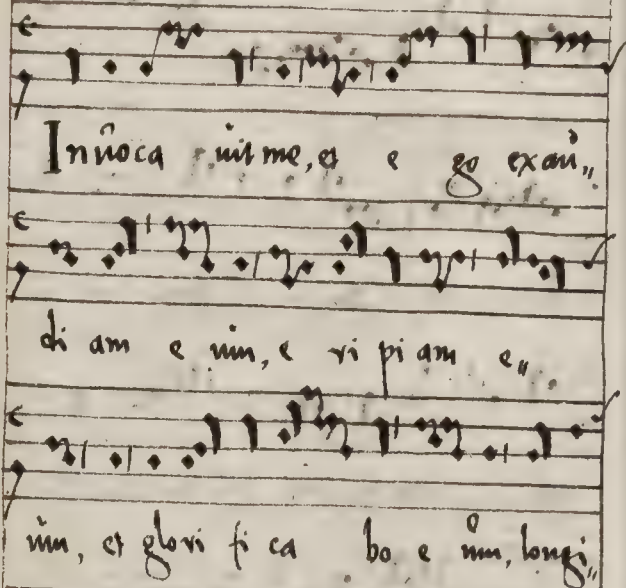 Invoca vit me, et e go exau„
di am e um, e ri pi am e„
um, et glori fi ca bo e um, longi„